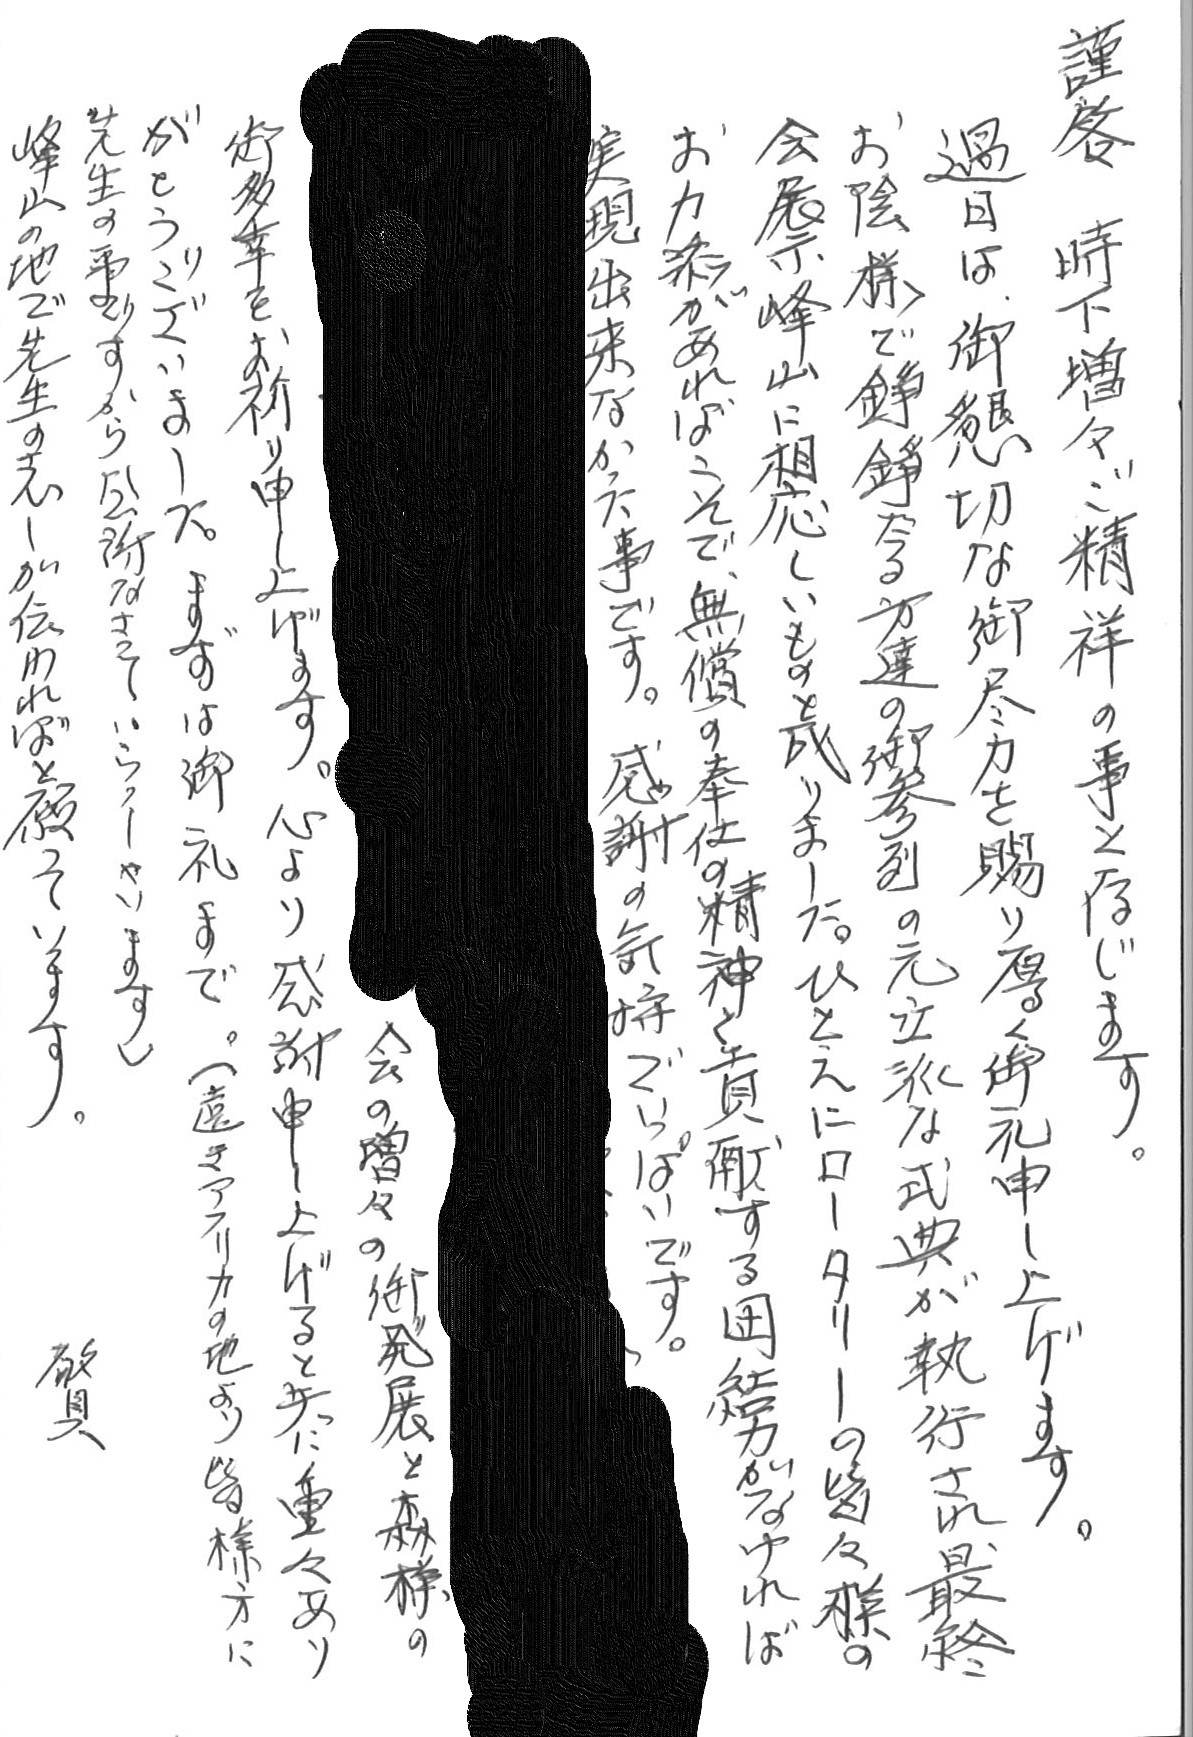 謹啓 時下増々ご精祥の事と存じます。
過日は、御懇切な御尽力を賜り厚く御礼申し上げます。
お陰様で錚錚たる方達の御参列の元立派な式典が執行され、最終
会展示峰山に相応しいものと成りました。ひとえにロータリーの皆々様の
お力添があればこそで、無償の奉仕の精神と貢献する団結力がなければ
実現出来なかった事です。感謝の気持でいっぱいです。
会の増々の御発展と森様の
御多幸をお祈り申し上げます。心より感謝申し上げると共に重々あり
がとうございました。まずは御礼まで。(遠きアフリカの地より皆様方に
先生の事ですから なさっていらっしゃいます)
峰山の地で先生の志しが伝わればと願っています。
敬具